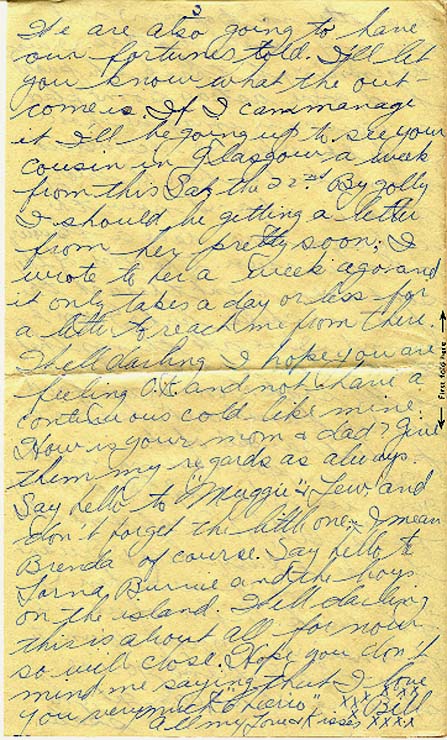 3
We are also going to have
our fortunes told. I'll let
you know what the out-
come is. If I can manage
it I'll be going up to see your
cousin in Glasgow a week
from this Sat. the 22nd By golly
I should be getting a letter
from her pretty soon. I
wrote to her a week ago and
it only takes a day or less for
a letter to reach me from there.
Well darling I hope you are
feeling O.K. and not have a
continuous cold like mine.
How is your mom & dad? Give
them my regards as always
Say hello to "Muggie" & Lew, and
don't forget the little one, I mean
Brenda of course. Say hello to
Lorna, Burnie and the boys
on the island. Well darling
this is about all for now
so will close. Hope you don't
mind me saying that I love
you very much "Cheerio" Bill
All my Love & Kisses XXXX
First fold here